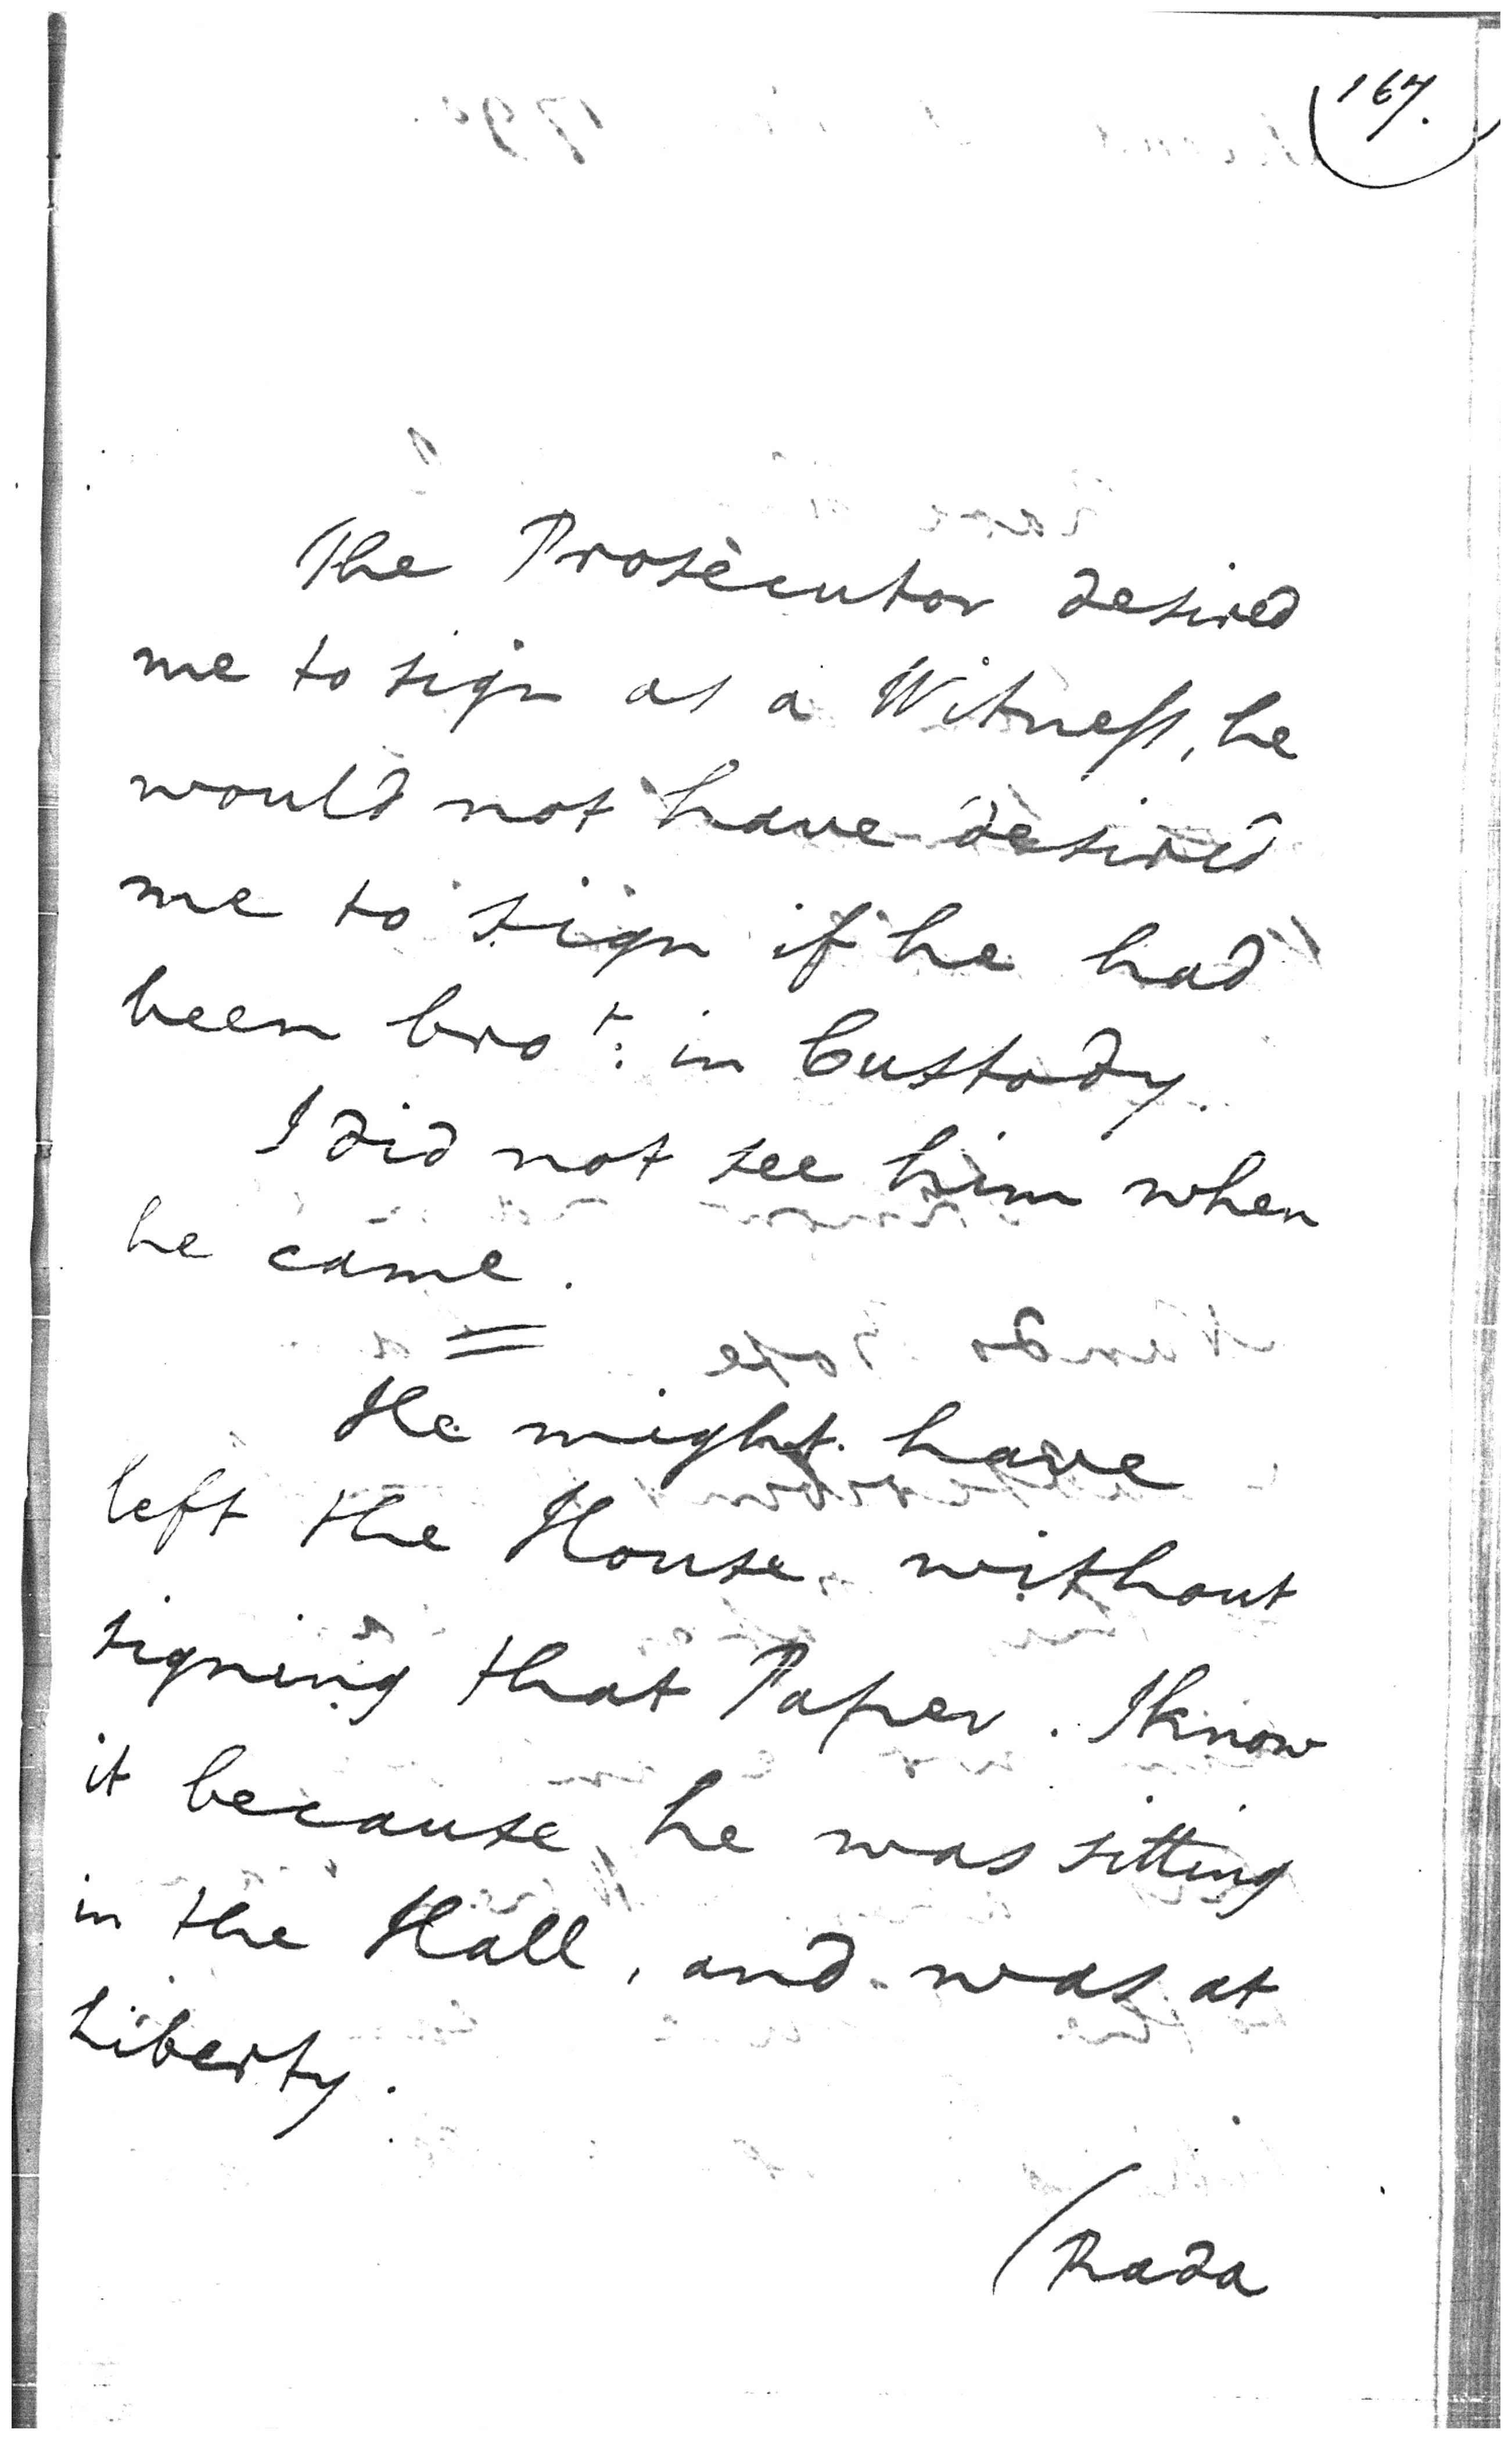 167.
The Prosecutor desired
me to sign as a Witness, he
would not have desired
me to sign if he had
been bro^t: in Custody.
I did not see him when
he came.
He might have
left the House without
signing that Paper. I know
it because he was sitting
in the Hall, and was at
Liberty.
(Rada